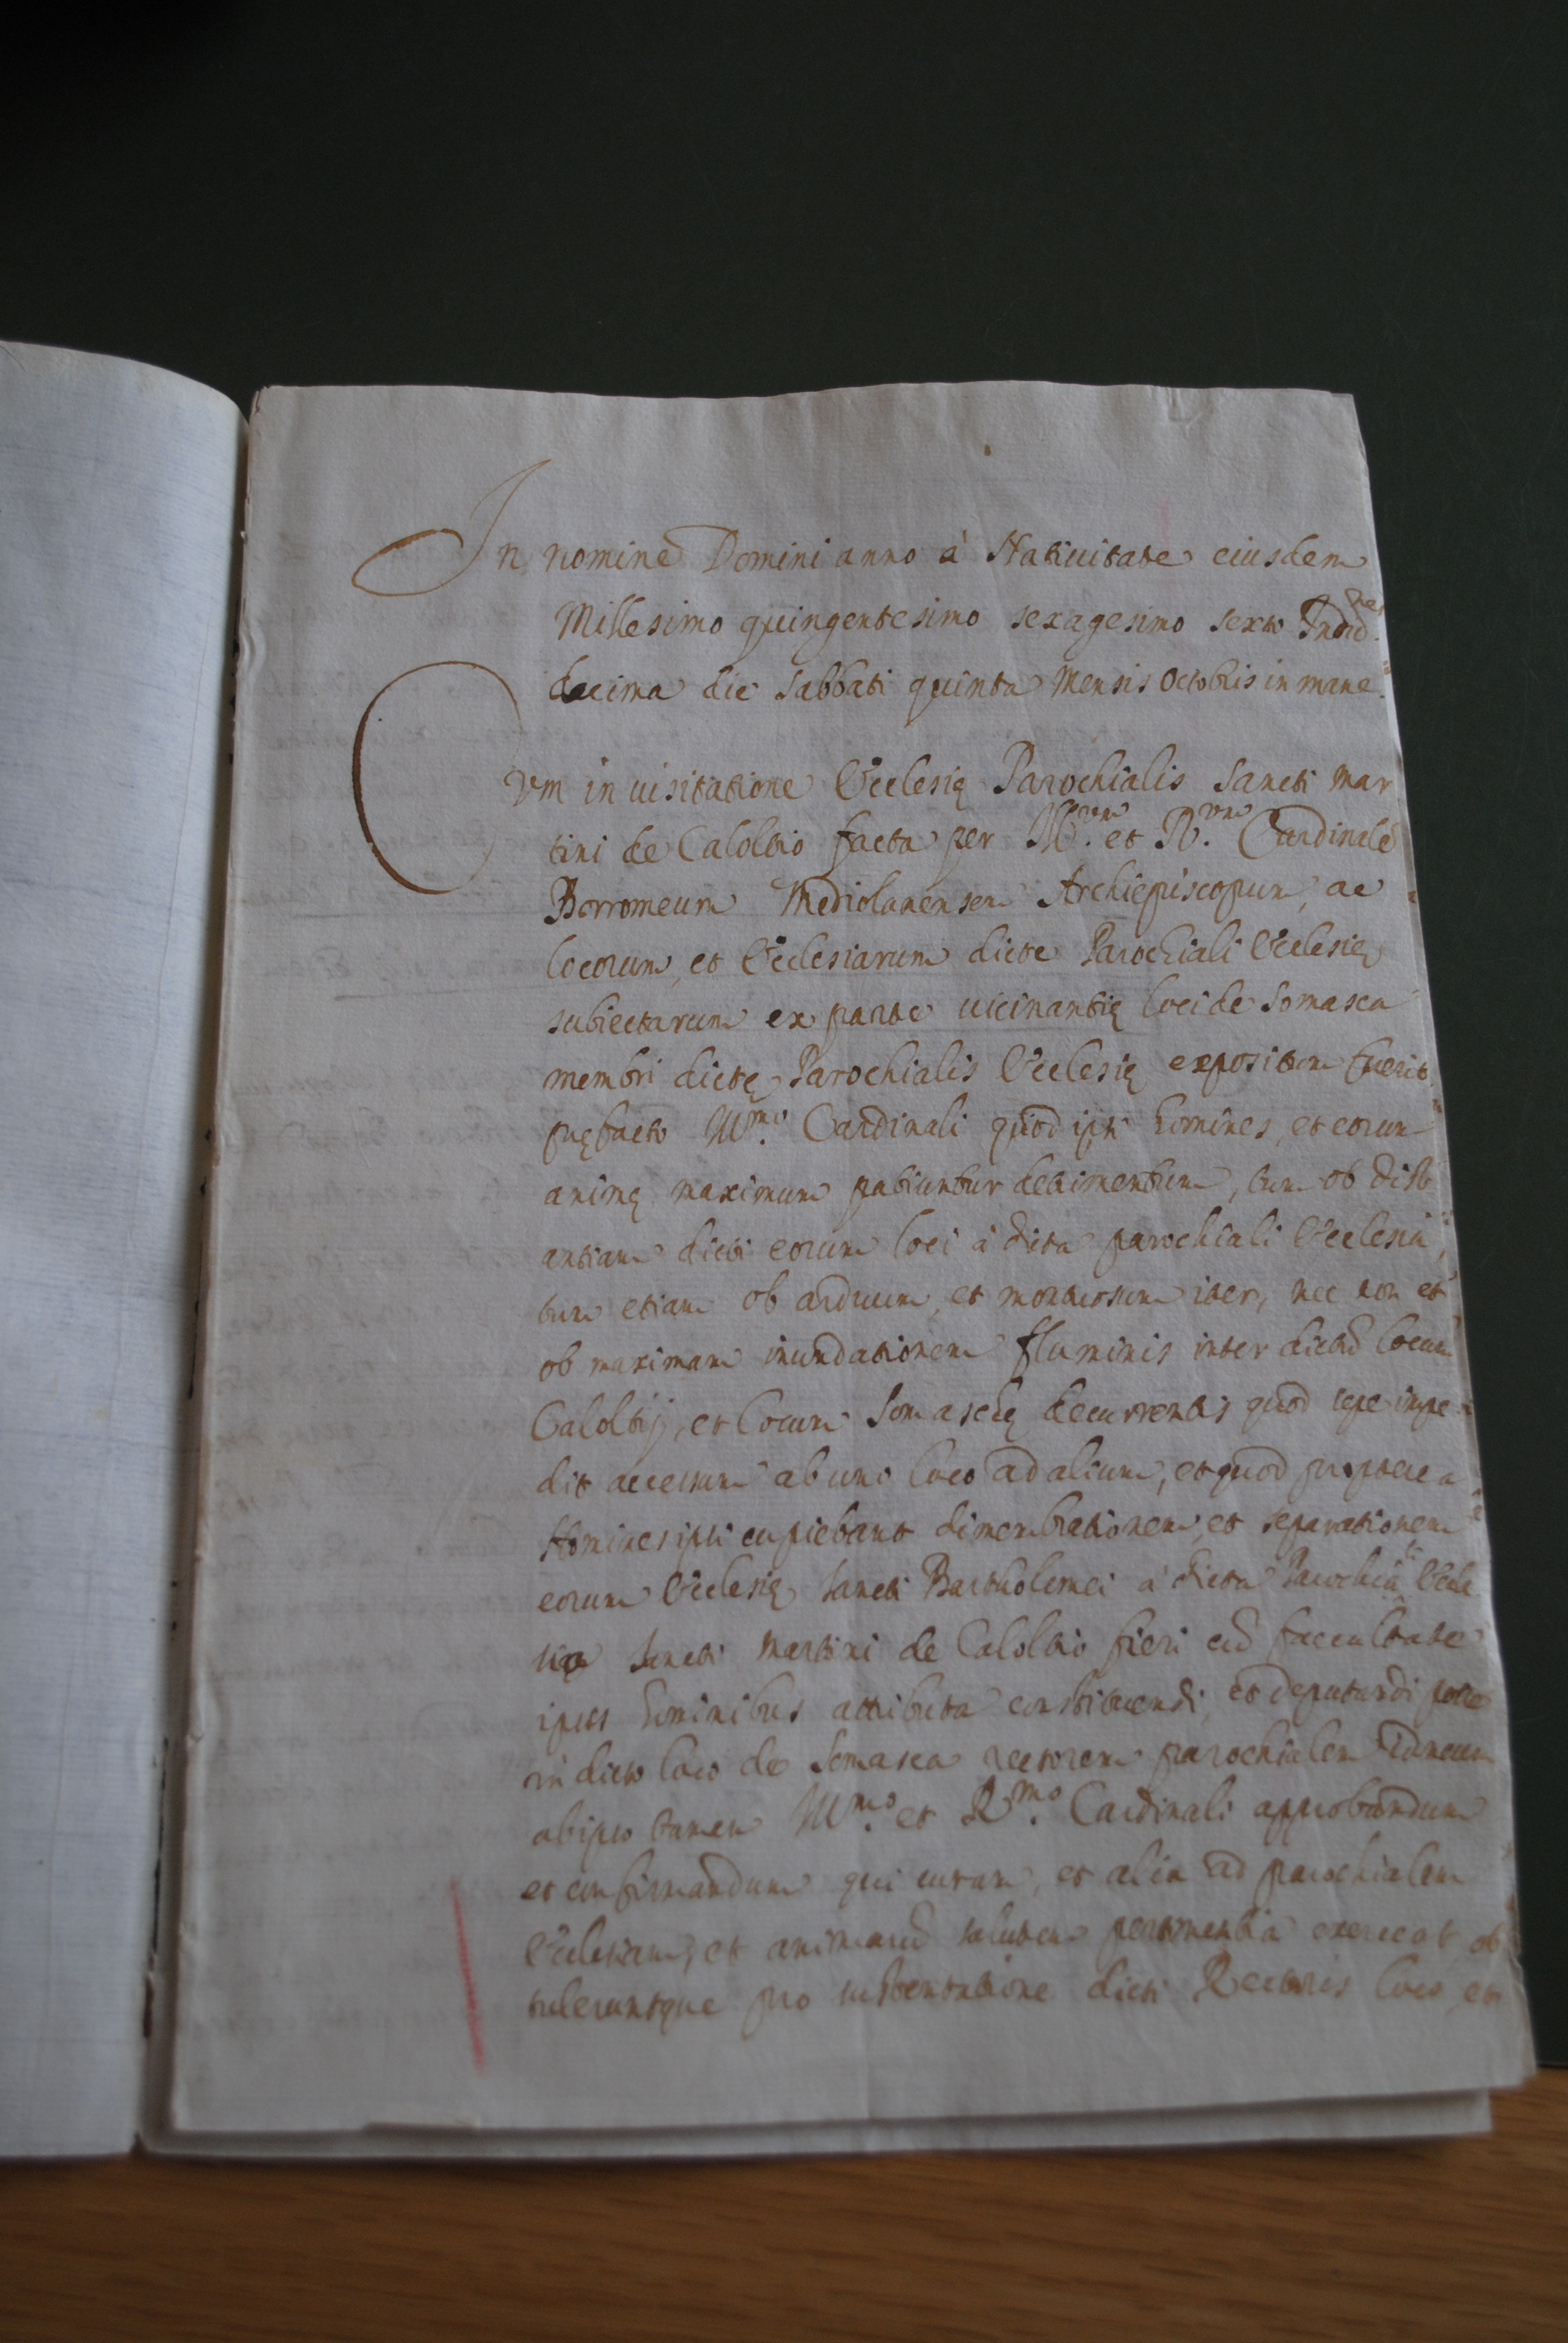 In nomine Domini anno à Natiuitate eiusdem
Millesimo quingentesimo sexagesimo sexto Indne
decima die Sabbati quinta Mensis Octobris in mane
Cvm in uisitatione Ecclesię Parochialis Sancti Mar
tini de Caloltio facta per Ill.um et R.um Cardinalē
Borromeum Mediolanensem Archiepiscopum, ac
locorum, et Ecclesiarum dicte Parochiali Ecclesię
subiectarum ex parte uicinantię loci de Somasca
membri dictę Parochialis Ecclesię expositum fuerit
pręfacto Ill.mo Cardinali quod ipsi homines, et eorum
animę maximum patiuntur detrimentum, tum ob dist
antiam dicti eorum loci à dicta parochiali Ecclesia,
tum etiam ob arduum, et montuosum iter, nec non et
ob maximam inundationem fluminis inter dictū locum
Caloltij, et locum Somaschę decurrentis quod sepe impe
dit accessum ab uno loco ad alium, et quod propterea
Homines ipsi cupiebant dimembrationem, et separationem
eorum Ecclesię Sancti Bartholomei à dicta Parochiali Eccle
sia Sancti Martini de Caloltio fieri cū faccultate
ipsis hominibus attributa constituendi, et deputandi
in dicto loco de Somasca rectorem parochialem idoneum
ab ipso tamen Ill.mo et R.mo Cardinali approbandum
et confirmandum qui curam, et alia ad parochialem
Ecclesiam, et animarū salutem pertinentia exerceat, ob
tuleruntque pro sustentatione dicti Rectoris loco, et